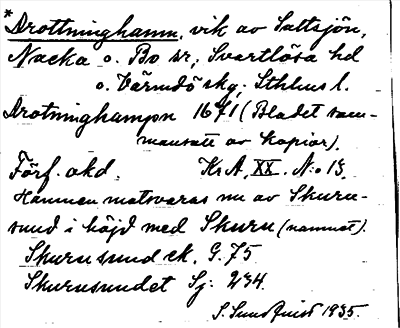 * Drottninghamn, vik av Saltsjön,
Nacka o. Bo sr, Svartlösa hd
o. Värmdö skg, Sthlms l.
Drotninghampn 1671 (Bladet sam-
mansatt av kopior).
Förf. okd. Kr A, XX. N:o 13.
Hamnen motsvaras nu av Skuru-
sund i höjd med Skuru (namnet).
Skurusund ek. G. 75
Skurusundet Sj: 234.
S. Sundquist 1935.